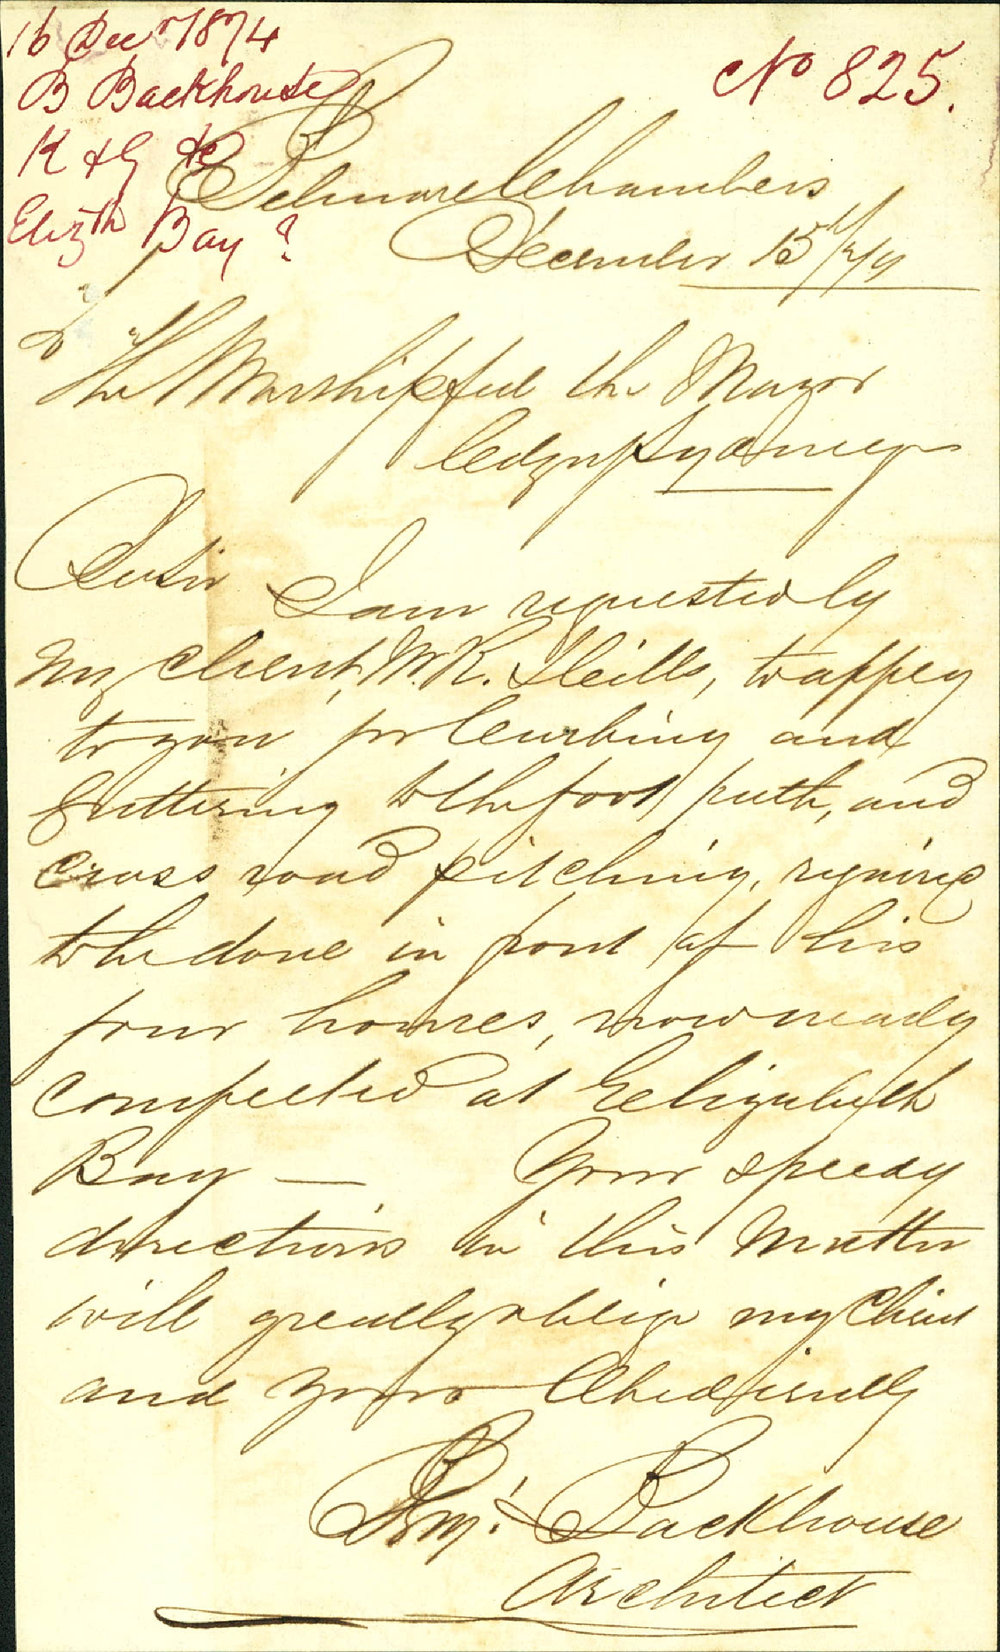 16 Decr 1874
B Backhouse
K & G &c
Elizth Bay?
No 825.
Belmore Chambers
December 15th/74
To
"The Worshipful the Mayor
City of Sydney
Dr Sir
I am requested by
my client, Mr. K. to apply
to you for Curbing and
Guttering to the foot path, and
cross road pitching, required
to be done in front of his
four houses, now nearly
completed at Elizabeth
Bay — Your speedy
directions in this Matter
will greatly oblige my Client
and yours Obediently
Benjn. Backhouse
Architect